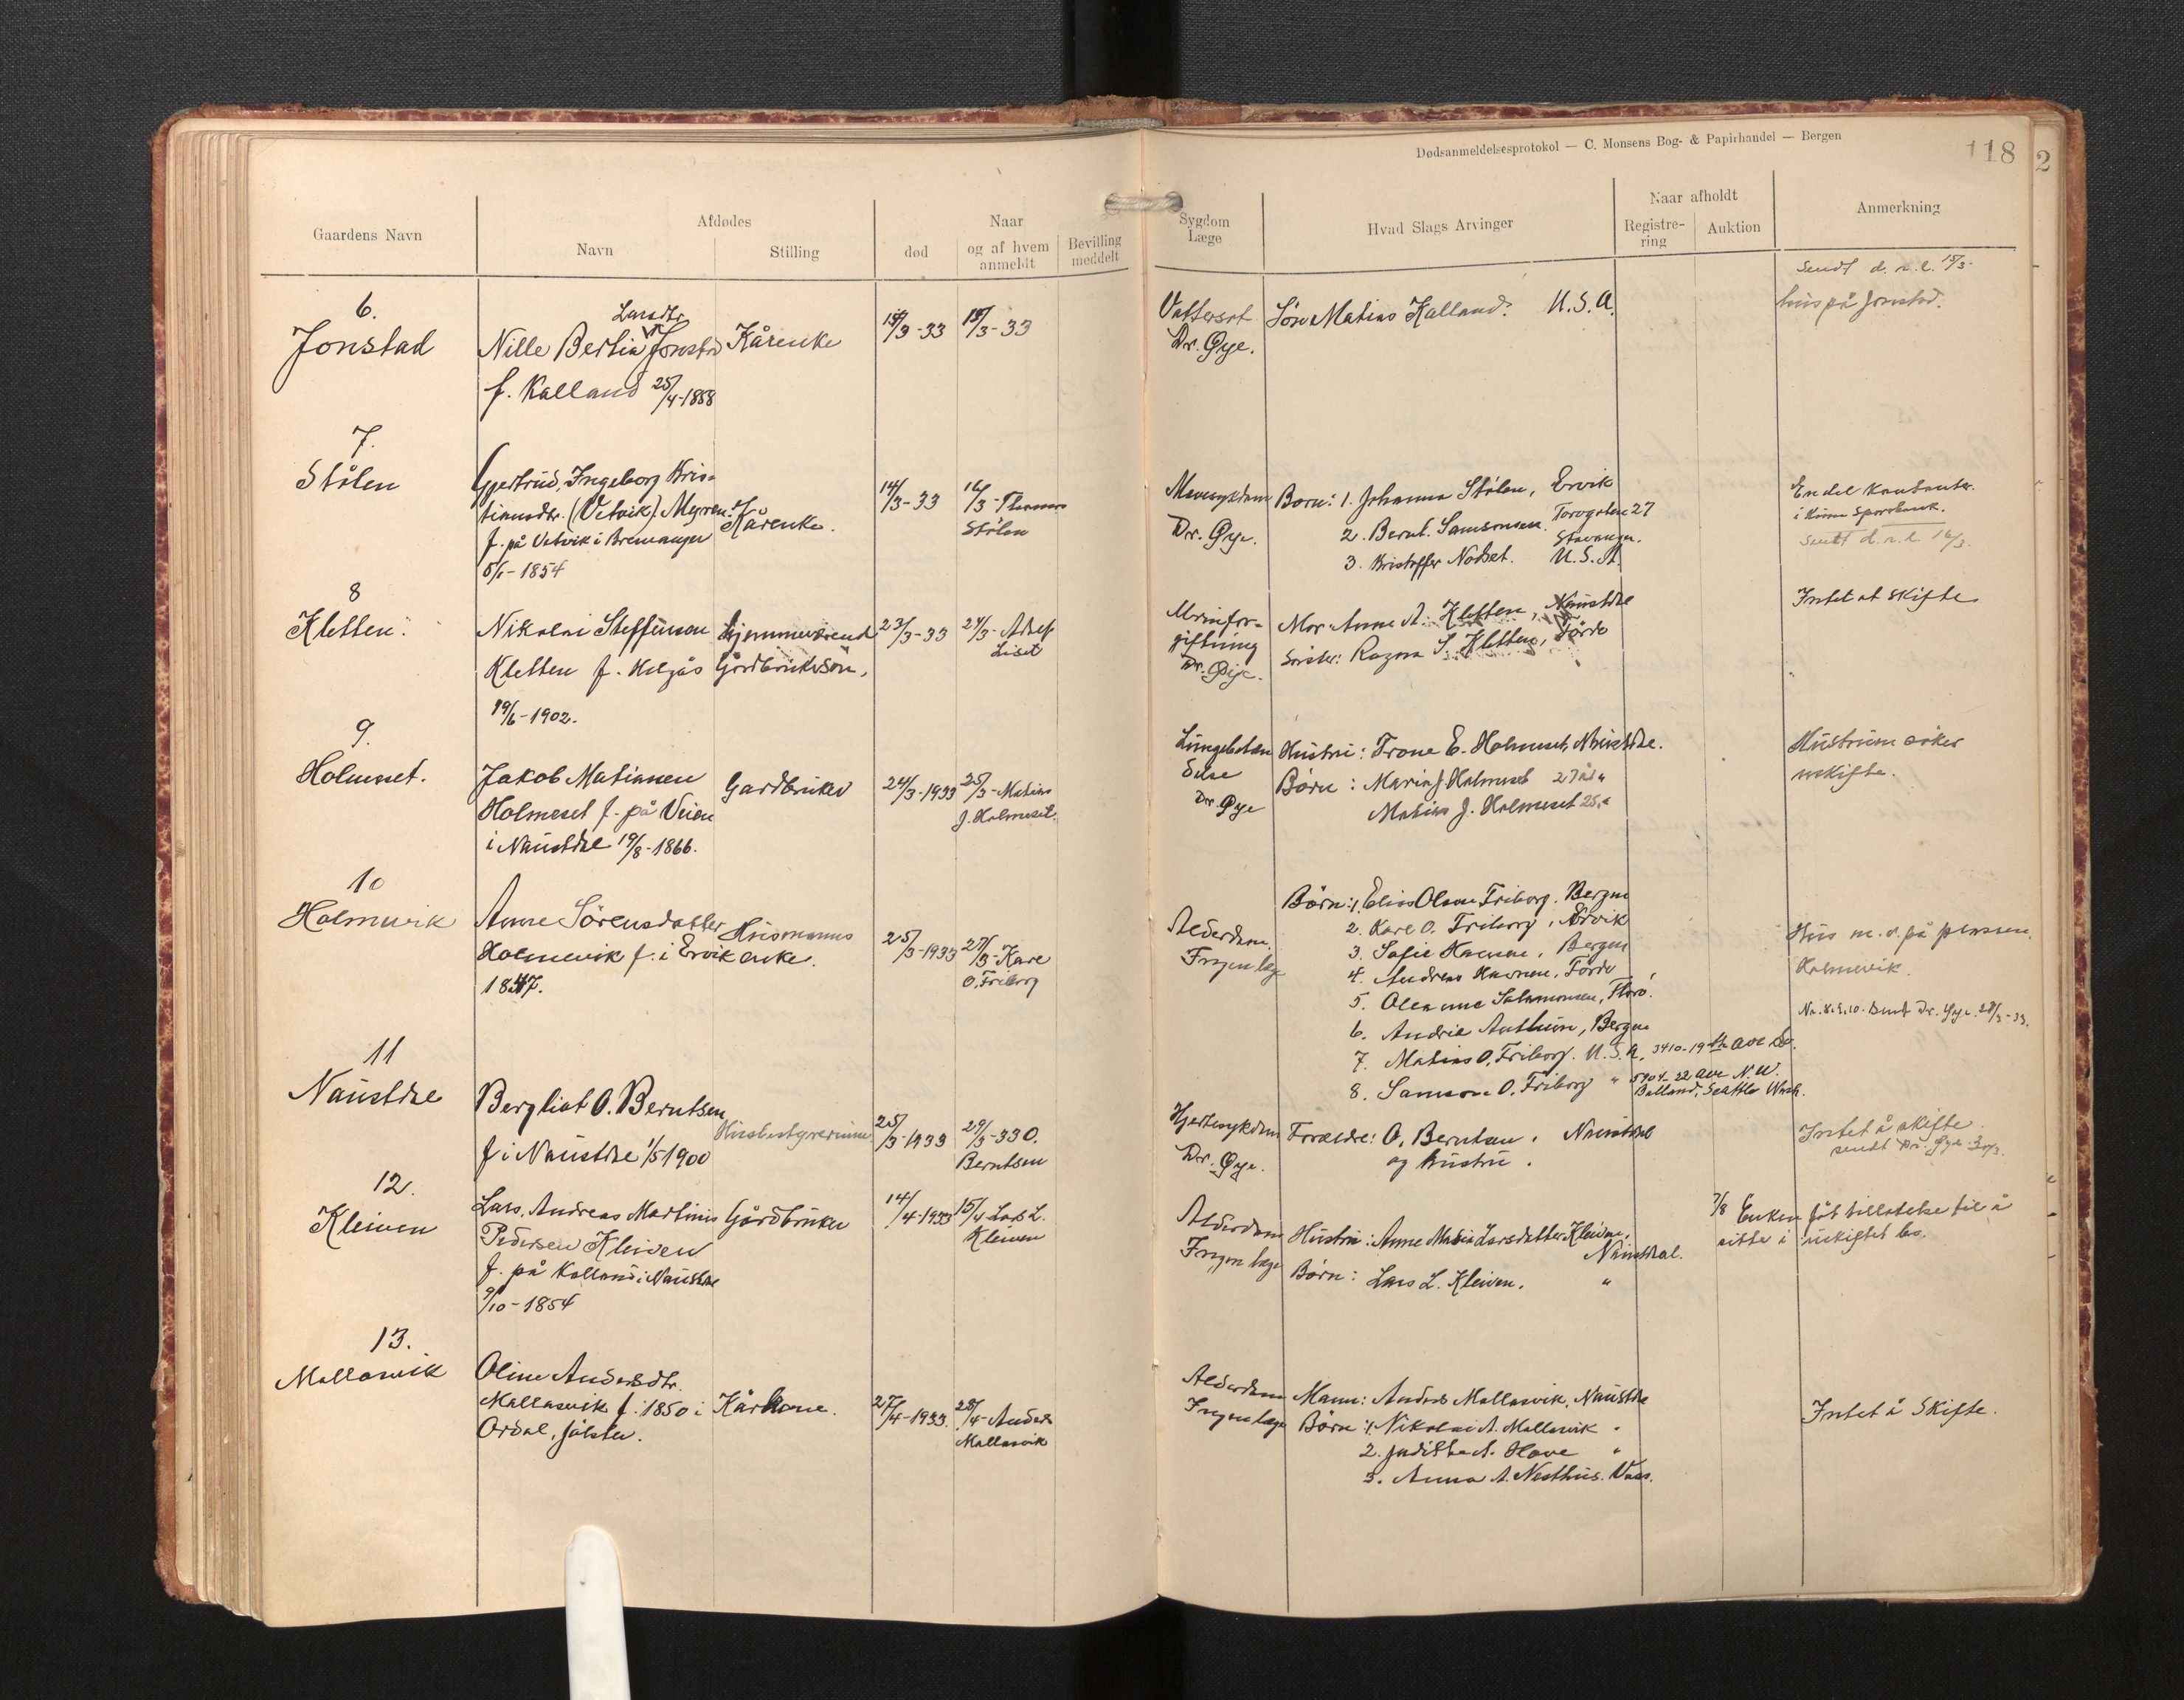 Dødsanmeldelsesprotokol — C. Monsens Bog- & Papirhandel — Bergen
118
2
Gaardens Navn
Afdødes
Navn
Stilling
Naar
død
og af hvem anmeldt
Bevilling meddelt
Sygdom
Læge
Hvad Slags Arvinger
Naar afholdt
Registre-
ring
Auktion
Anmerkning
6.
Jonstad
Larsdtr
Nille Bertin Jonstad
f. Kalland 25/4-1858
Kårenke
15/3-33
15/3-33
Vattersot
Dr. Øye.
Søn Matias Kalland. U.S.A.
Sendt d.r.l. 15/3.
hus på Jonstad.
7.
Stølen
Gjertrud, Ingeborg Kris-
tiansdtr. (Vetvik) Myren
f. på Vetvik i Bremanger
5/1-1854
Kårenke.
14/3-33
16/3-Thomas
Stølen
Mavesykdom
Dr. Øye.
Born: 1. Johanna Stølen, Ervik
2. Bernt Samsonsen. Torvgaten 27
Stavanger.
3. Kristoffer Nødset. U.S.A.
En del kontanter
i Kinn Sparebank.
Sendt d.r.l. 16/3.
8
Kletten.
Nikolai Steffenson
Kletten f. Helgås
19/6-1902.
hjemmeværend
Gårdbrukersøn.
23/3-33
24/3-Adolf
Liset
Urinfor-
giftning
Dr. Øye.
Mor Anne A. Kletten, Naustdal
Søster: Ragna S. Kletten, Førde
Intet at skifte
9.
Holmeset.
Jakob Matiassen
Holmeset f. på Veien
i Naustdal 19/8-1866.
Gardbruker
24/3-1933
25/3-Matias
J. Holmeset.
Lungebeten
delse
Dr. Øye
Hustru: Trone E. Holmeset, Naustdal.
Børn: Maria J. Holmeset 27 år "
Matias J. Holmeset 25 "
Hustruen søker
uskifte.
10
Holmevik
Anne Sørensdatter
Holmevik f. i Ervik
1847.
Husmanns
enke.
25/3-1933
27/3-Kare
O. Friborg
Alderdom.
Ingen læge
Børn: 1. Elias Olsen Friborg. Bergen
2. Kare O. Friborg, Ervik
3. Sofie Havnen, Bergen
4. Andreas Havnen, Førde
5. Oleanne Salamonsen, Florø.
6. Andrea Anthun, Bergen
7. Matias O. Friborg. U.S.A. 3410-19th Ave So.
8. Samson O. Friborg " 5904-22 Ave N.W.
Balland, Seattle Wash.
Hus m.v. på plassen
Holmevik.
No. 8.9.10. Sendt Dr. Øye 28/3-33.
11
Naustdal
Bergliot O. Berntsen
f i Naustdal 1/5 1900
Husbestyrerinne
25/3-1933
29/3-33 O.
Berntsen
Hjertesykdom
Dr. Øye.
Forældre: O. Berntsen. Naustdal
og hustru.
Intet å skifte.
sendt Dr. Øye 30/3.
12.
Kleiven
Lars, Andreas Martinus
Pedersen Kleiven
f. på Kalland i Naustdal
9/10-1854
Gårdbruker
14/4-1933
15/4 Lars L.
Kleiven
Alderdom
Ingen læge
Hustru: Anne Maria Larsdatter Kleiven,
Naustdal.
Børn: Lars L. Kleiven. "
7/8 Enken fåt tillatelse til å
sitte i uskiftet bo.
13.
Mallasvik
Oline Andersdtr.
Mallasvik f. 1850 i
Ordal, Jølster.
Kårkone.
27/4-1933.
28/4-Anders
Mallasvik
Alderdom
Ingen læge
Mann: Anders Mallasvik, Naustdal
Børn: 1. Nikolai A. Mallasvik "
2. Judithe A. Hove "
3. Anna A. Nesthus. Voss.
Intet å Skifte.